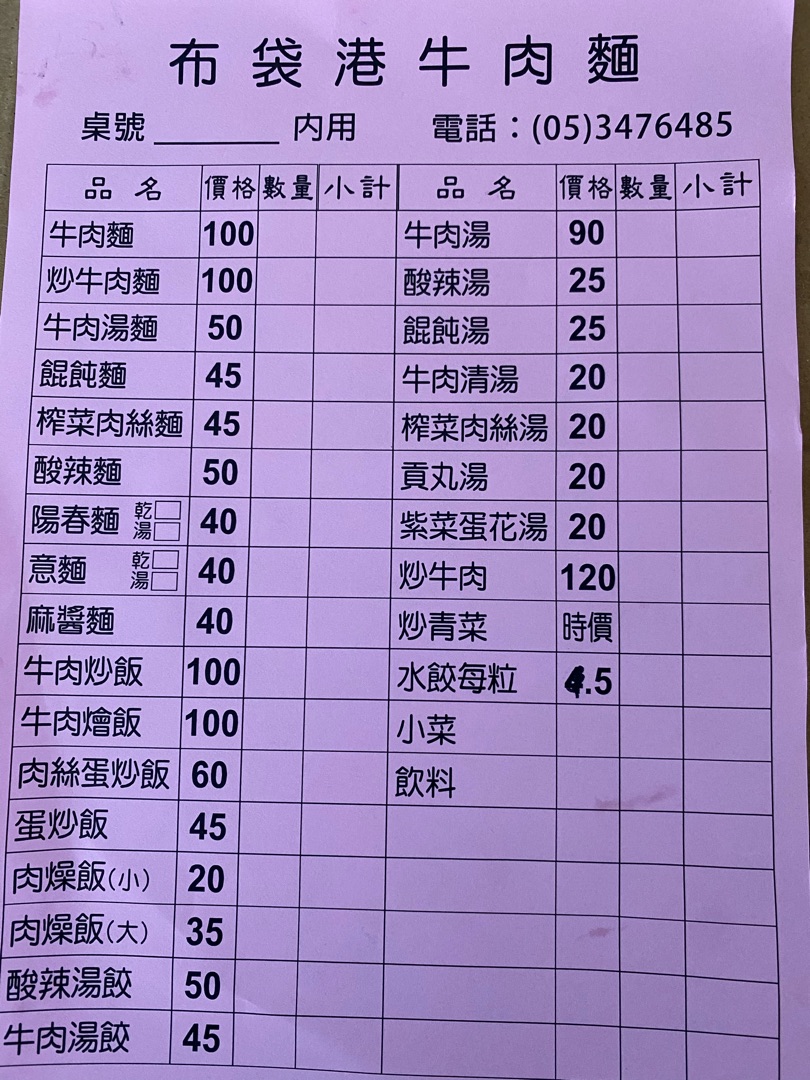 布袋港牛肉麵
桌號 內用 電話：(05)3476485
品名 價格 數量 小計 品名 價格 數量 小計
牛肉麵 100 牛肉湯 90
炒牛肉麵 100 酸辣湯 25
牛肉湯麵 50 餛飩湯 25
餛飩麵 45 牛肉清湯 20
榨菜肉絲麵 45 榨菜肉絲湯 20
酸辣麵 50 貢丸湯 20
陽春麵 乾 湯 40 紫菜蛋花湯 20
意麵 乾 湯 40 炒牛肉 120
麻醬麵 40 炒青菜 時價
牛肉炒飯 100 水餃每粒 .5
牛肉燴飯 100 小菜
肉絲蛋炒飯 60 飲料
蛋炒飯 45
肉燥飯(小) 20
肉燥飯(大) 35
酸辣湯餃 50
牛肉湯餃 45